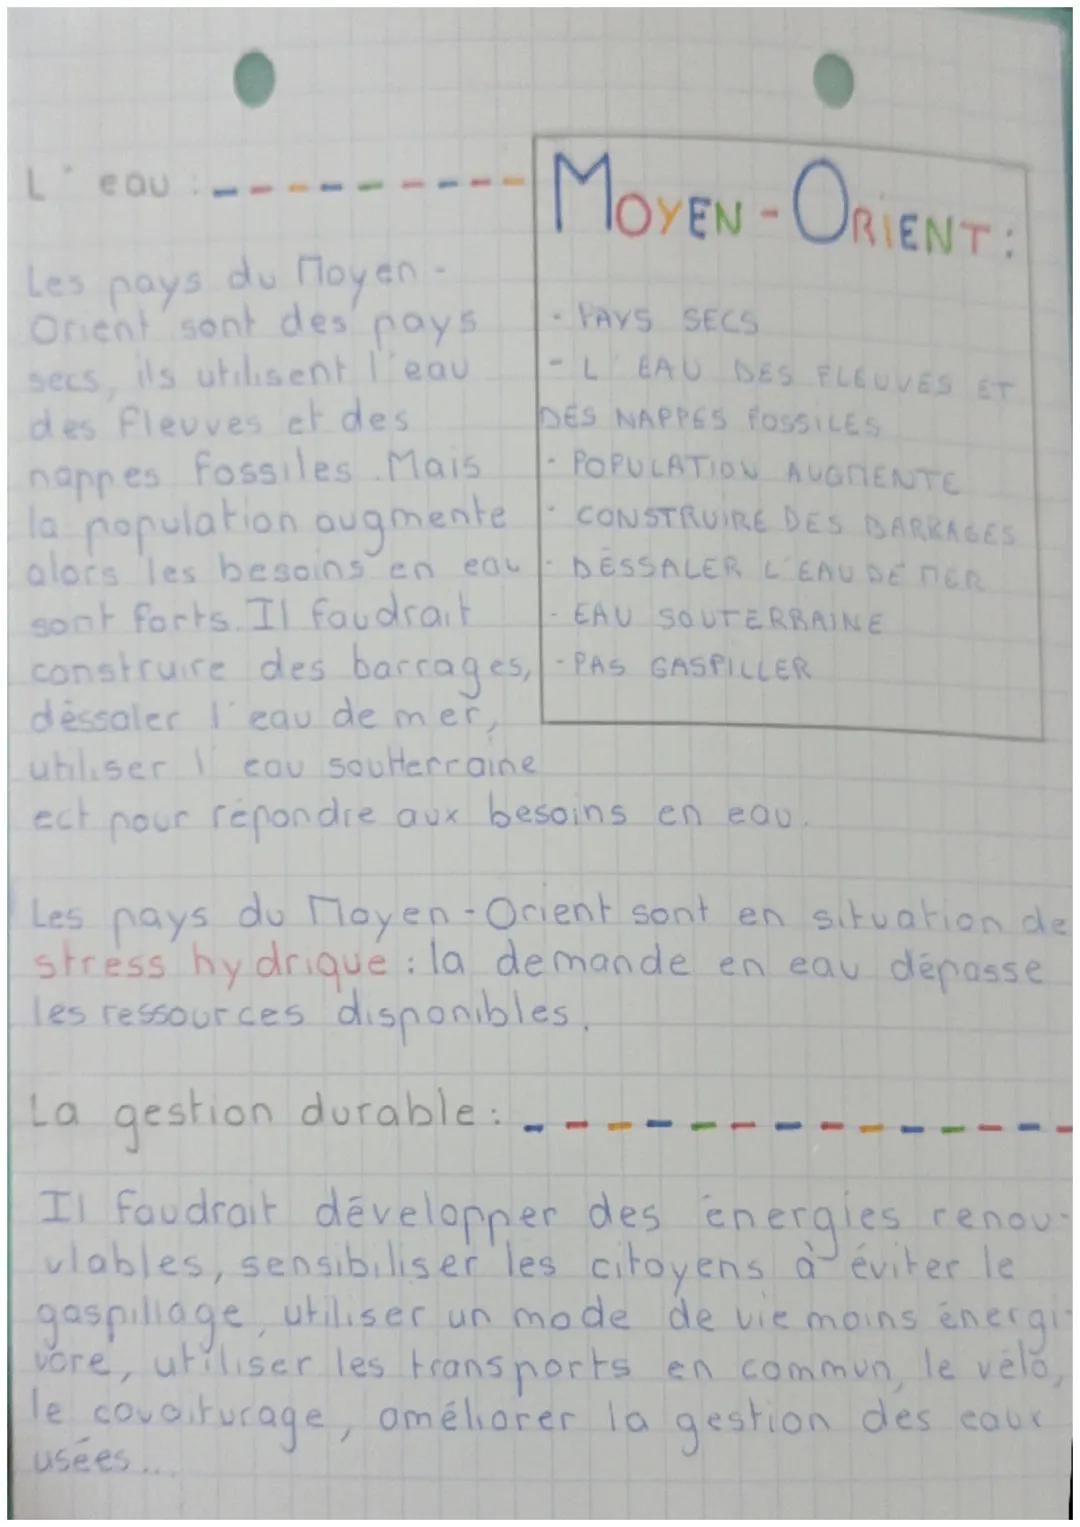 L'eau :
Les pays du Moyen-
Orient sont des pays
secs, ils utilisent l'eau
des fleuves et des
nappes fossiles. Mais
la population augmente
alors les besoins en eau
sont forts. Il faudrait
construire des barrages,
déssaler l'eau de mer,
utiliser l'eau soutterraine
ect pour répondre aux besoins en eau.
MOYEN-ORIENT :
- PAYS SECS
- L'EAU DES FLEUVES ET
DES NAPPES FOSSILES
- POPULATION AUGMENTE
- CONSTRUIRE DES BARRAGES
- DÉSSALER L'EAU DE MER
- EAU SOUTERRAINE
- PAS GASPILLER
Les pays du Moyen-Orient sont en situation de
stress hydrique : la demande en eau dépasse
les ressources disponibles.
La gestion durable :
Il faudrait développer des énergies renou-
vlables, sensibiliser les citoyens à éviter le
gaspillage, utiliser un mode de vie moins énergi-
vore, utiliser les transports en commun, le vélo,
le covoiturage, améliorer la gestion des eaux
usées...